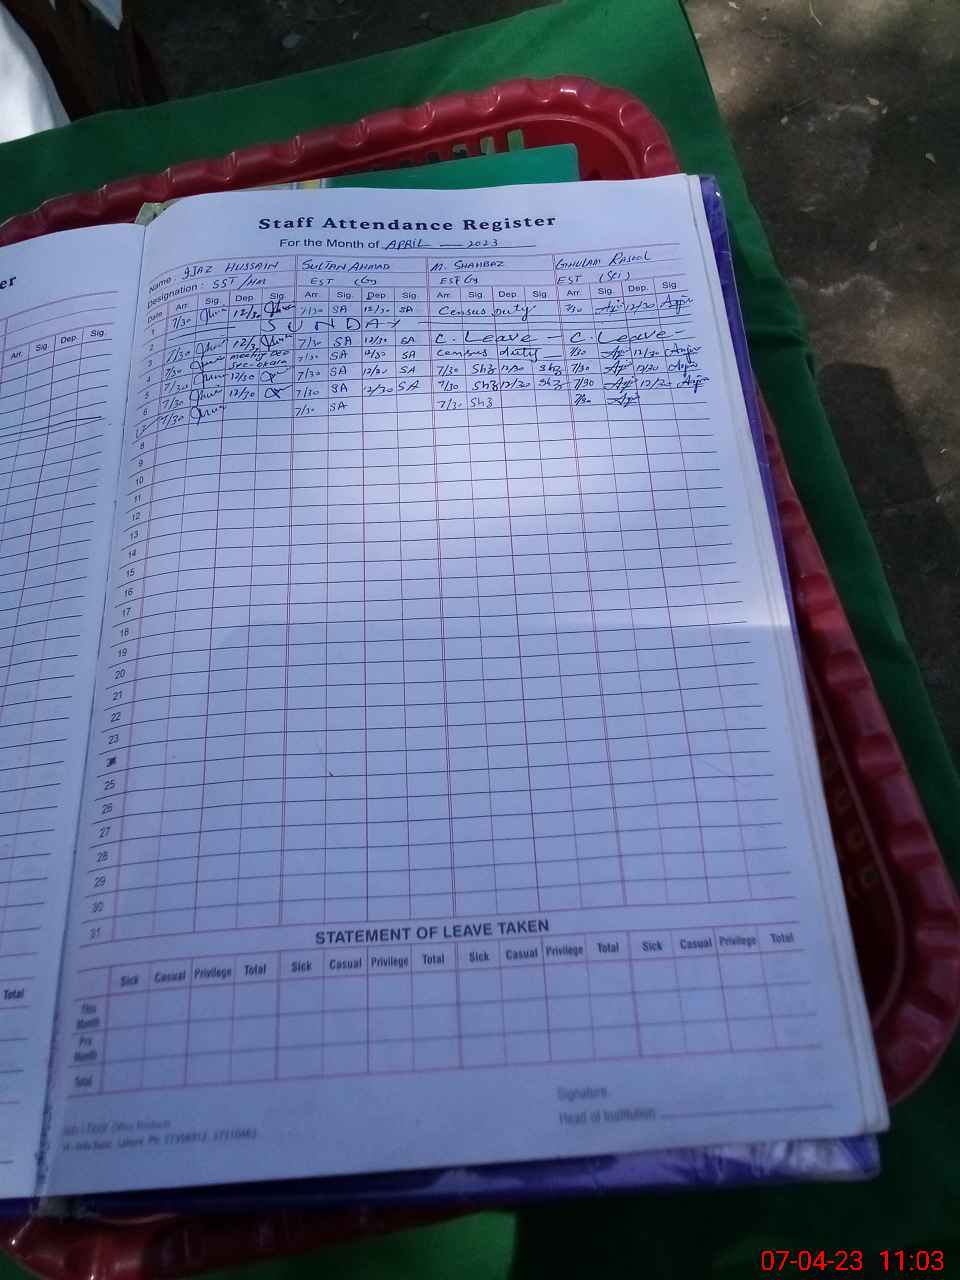 er
Staff Attendance Register
For the Month of APRIL — 2023
Name : IJAZ HUSSAIN SULTAN AHMAD M. SHAHBAZ GHULAM RASOOL
Designation : SST /HM EST (G) EST G) EST (Sci)
Arr. Sig. Dep. Sig.
Date Arr. Sig. Dep. Sig. Arr. Sig. Dep. Sig. Arr. Sig. Dep. Sig. Arr. Sig. Dep. Sig.
1 7/30 12/30 7/30 SA 12/30 SA Census duty 7/30 12/30
2 SUNDAY
3 7/30 12/30 7/30 SA 12/30 SA C. Leave — C. Leave —
4 7/30 7/30 SA 12/30 SA census duty 7/30 12/30
5 7/30 12/30 7/30 SA 12/30 SA 7/30 Shz 12/30 Shz 7/30 12/30
6 7/30 12/30 7/30 SA 12/30 SA 7/30 Shz 12/30 Shz 7/30 12/30
7/30 7/30 SA 7/30 Shz 7/30
8
9
10
11
12
13
14
15
16
17
18
19
20
21
22
23
25
26
27
28
29
30
31
STATEMENT OF LEAVE TAKEN
Sick Casual Privilege Total Sick Casual Privilege Total Sick Casual Privilege Total Sick Casual Privilege Total
Total
This Month
Pre. Month
Total
Signature
Head of Institution
07-04-23 11:03